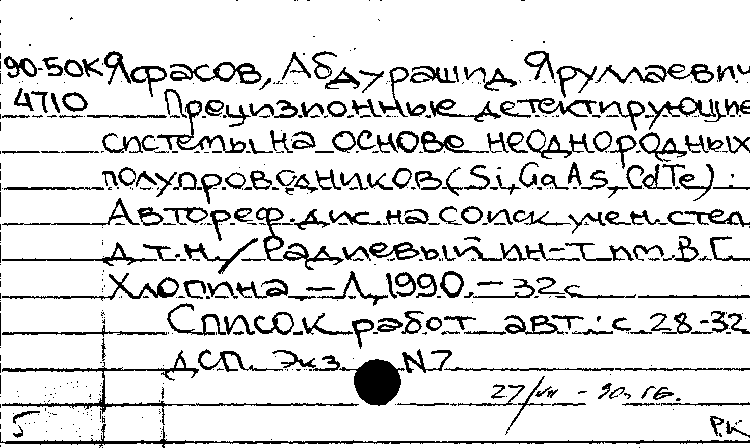 90-50К Яфасов, Абдурашид Яруллаевич
4710 Прецизионные детектирующие
системы на основе неоднородных
полупроводников (Si, GaAs, CdTe) :
Автореф. дис. на соиск учен. степ.
д.т.н. / Радиевый ин-т им. В.Г.
Хлопина. – Л, 1990. – 32 с
Список работ авт.: с. 28-32
ДСП. Экз. N 7
27/VII - 90г.
5 РК